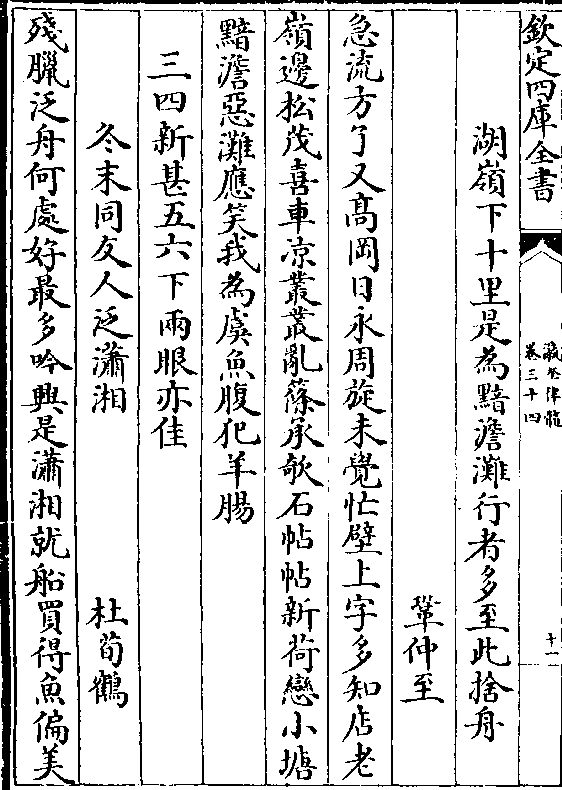 欽定四庫全書
瀛奎律髓
卷三十四
十一
湖嶺下十里是為黯澹灘行者多至此捨舟
鞏仲至
急流方了又高岡日永周旋未覺忙壁上字多知店老
嶺邊松茂喜車凉叢叢亂篠承欹石帖帖新荷戀小塘
黯澹惡灘應笑我為虞魚腹犯羊腸
三四新甚五六下兩眼亦佳
冬末同友人泛瀟湘
杜荀鶴
殘臘泛舟何處好最多吟興是瀟湘就船買得魚偏美